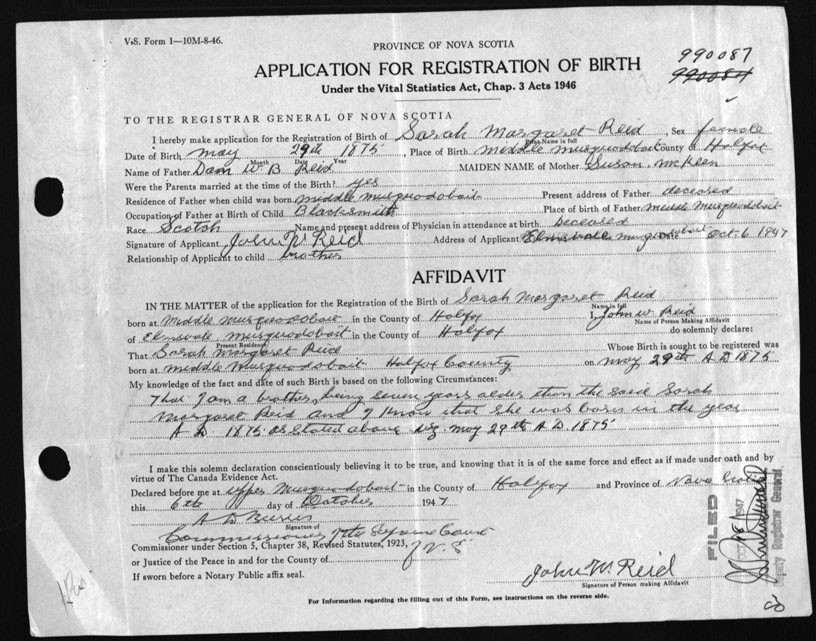 V.S. Form 1—10M-8-46.
PROVINCE OF NOVA SCOTIA
990087
990084
APPLICATION FOR REGISTRATION OF BIRTH
Under the Vital Statistics Act, Chap. 3 Acts 1946
TO THE REGISTRAR GENERAL OF NOVA SCOTIA
I hereby make application for the Registration of Birth of Sarah Margaret Reid, Sex female
Print Name in full
Date of Birth may 29th 1875, Place of Birth middle musquodobait County of Halfox
Month Date Year
Name of Father W B Reid MAIDEN NAME of Mother Suson mcKeen
Were the Parents married at the time of the Birth? yes
Residence of Father when child was born middle musquodobait Present address of Father deceased
Occupation of Father at Birth of Child Blacksmith Place of birth of Father middle musquodobait
Race Scotch Name and present address of Physician in attendance at birth deceased
Signature of Applicant John W Reid Address of Applicant Elmsvale musquodobait Date Oct 6 1947
Relationship of Applicant to child brother
AFFIDAVIT
IN THE MATTER of the application for the Registration of the Birth of Sarah margaret Reid
Name in full
born at middle musquodobait in the County of Halfox I, John W Reid
Name of Person Making Affidavit
of Elmsvale musquodobait in the County of Halfox do solemnly declare:
Present Residence
That Sarah margaret Reid Whose Birth is sought to be registered was
born at middle musquodobait Halfox County on may 29th A D 1875
My knowledge of the fact and date of such Birth is based on the following Circumstances:
That I am a brother, being seven years alder than the said Sarah
Margaret Reid and I know that she was born in the year
A D 1875 as stated above viz may 29th A.D. 1875
I make this solemn declaration conscientiously believing it to be true, and knowing that it is of the same force and effect as if made under oath and by
virtue of The Canada Evidence Act.
Declared before me at Upper Musquodobait in the County of Halifax and Province of Nova Scotia
this 6th day of October 1947
Signature of
Commissioner of the Supreme Court
Commissioner under Section 5, Chapter 38, Revised Statutes, 1923,
or Justice of the Peace in and for the County of
If sworn before a Notary Public affix seal.
John W. Reid
Signature of Person making Affidavit
For Information regarding the filling out of this Form, see instructions on the reverse side.
FILED
1947
Deputy Registrar General